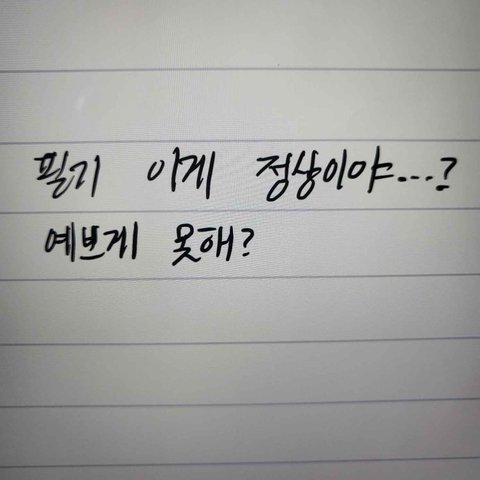 필기 이게 정상이야...?
예쁘게 못해?